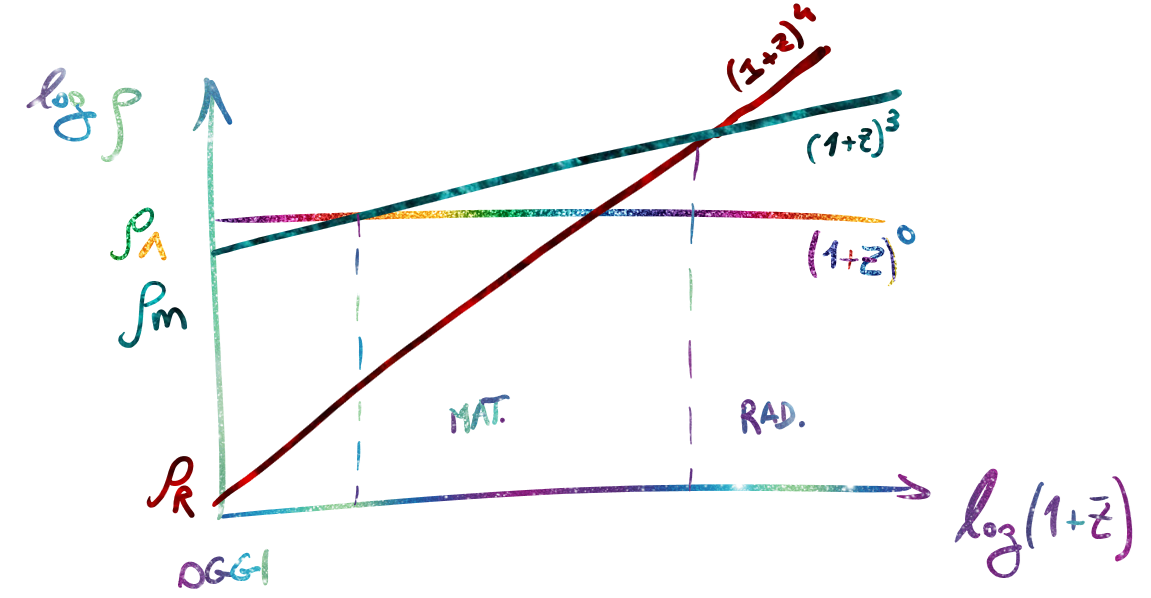 (1+z)⁴
log ρ
(1+z)³
ρΛ
(1+z)⁰
ρm
MAT.
RAD.
ρR
log(1+z)
OGGI